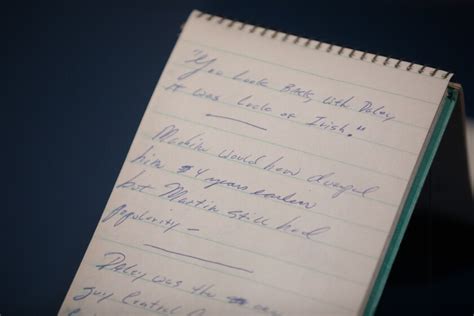 "You look Back, with Daley
it was luck of Irish."
Martin would have dumped
him 4 years earlier
but Martin still had
popularity –
Daley was the one
guy Central